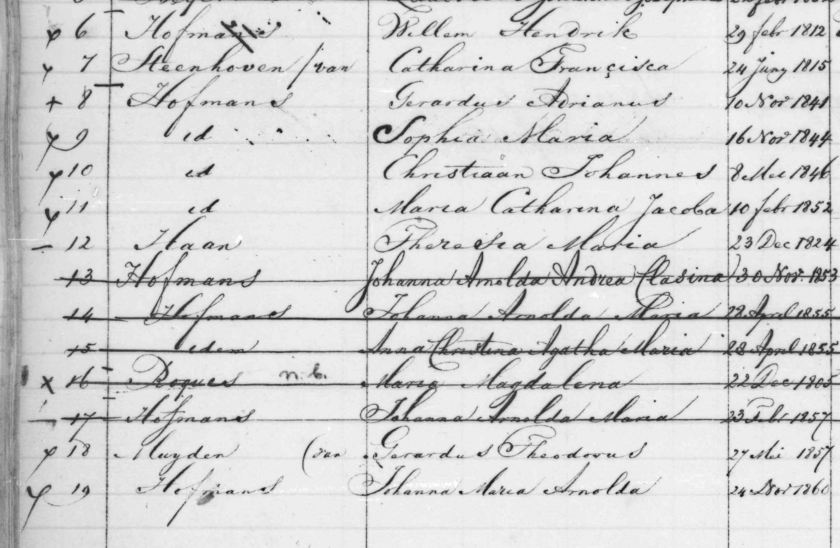 6 Hofmans Willem Hendrik 29 febr 1812
7 Steenhoven (van Catharina Françisca 24 Juny 1815
+ 8 Hofmans Gerardus Adrianus 10 Nov 1841
9 id Sophia Maria 16 Nov 1844
10 id Christiaan Johannes 8 Mei 1846
11 id Maria Catharina Jacoba 10 febr 1852
- 12 Haan Theresia Maria 23 Dec 1824
13 Hofmans Johanna Arnolda Andrea Clasina 30 Nov 1853
14 Hofmans Johanna Arnolda Maria 28 April 1855
15 idem Anna Christina Agatha Maria 28 April 1855
x 16 Roques n.b. Maria Magdalena 22 Dec 1805
17 Hofmans Johanna Arnolda Maria 23 Febr 1857
18 Muyden (van Gerardus Theodorus 27 Mei 1857
19 Hofmans Johanna Maria Arnolda 24 Nov 1860